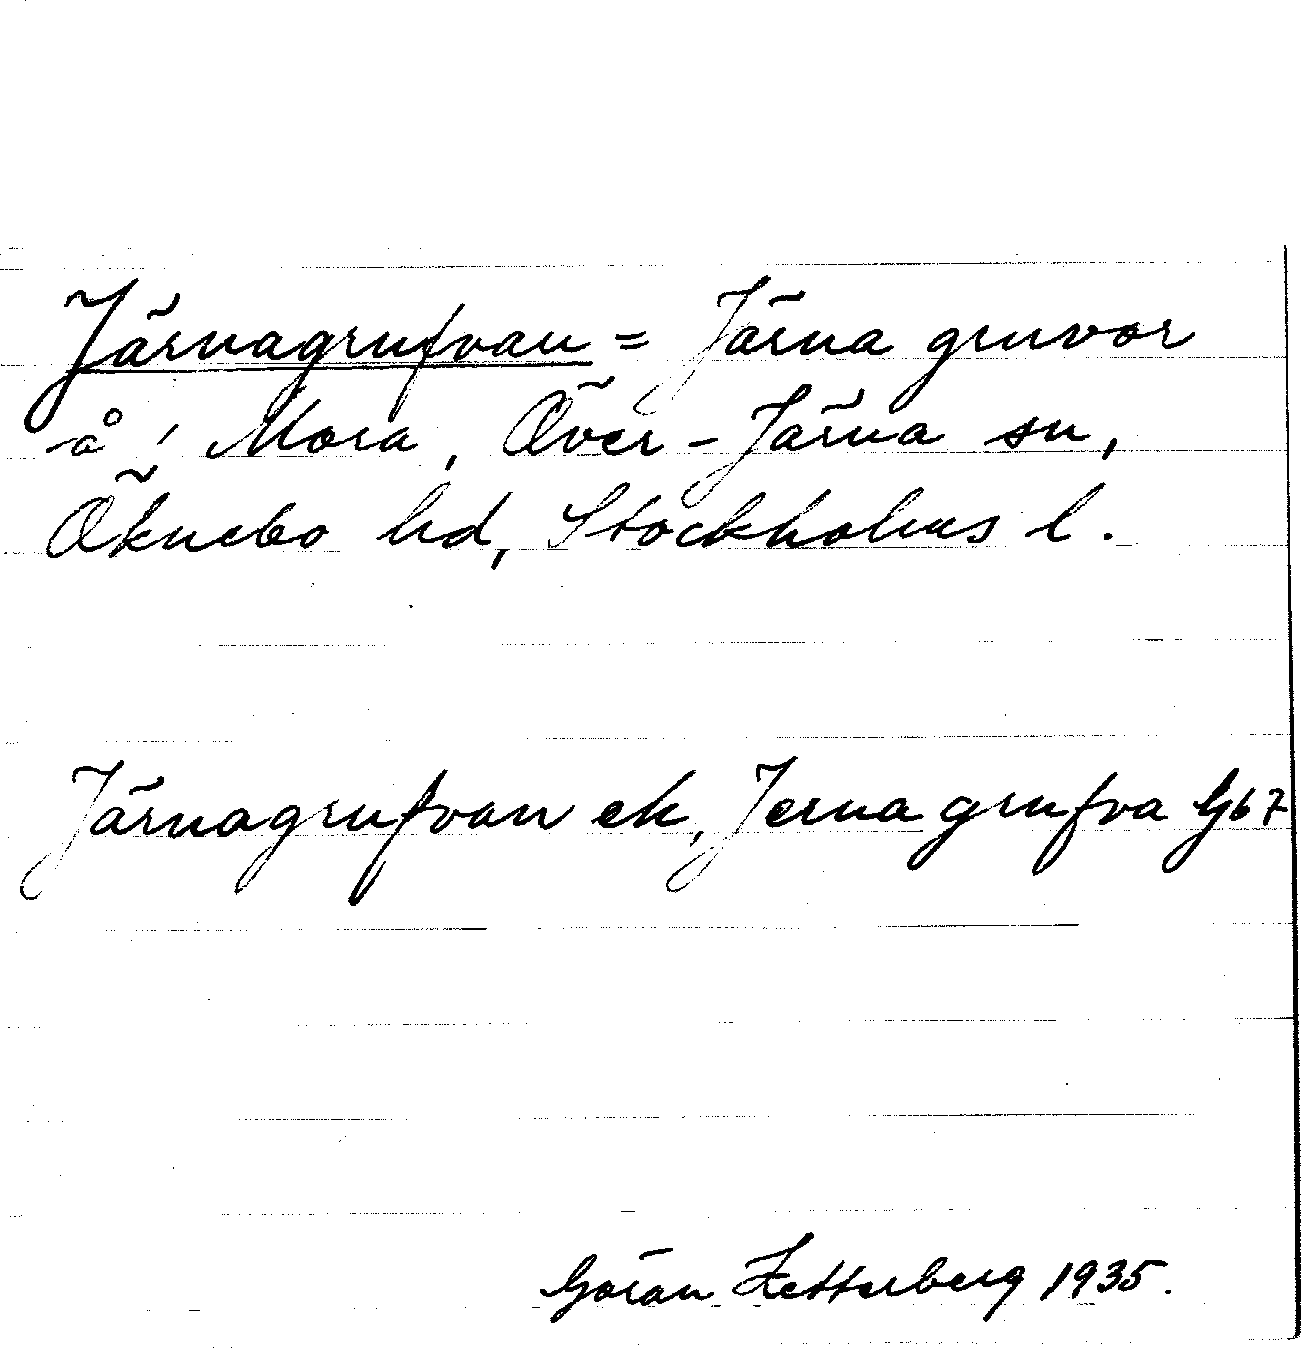 Järnagrufvan = Järna gruvor
å ' Mora, Över-Järna sn,
Öknebo hd, Stockholms l.
Järnagrufvan ek, Jerna grufva Gb 7
Göran Zetterberg 1935.